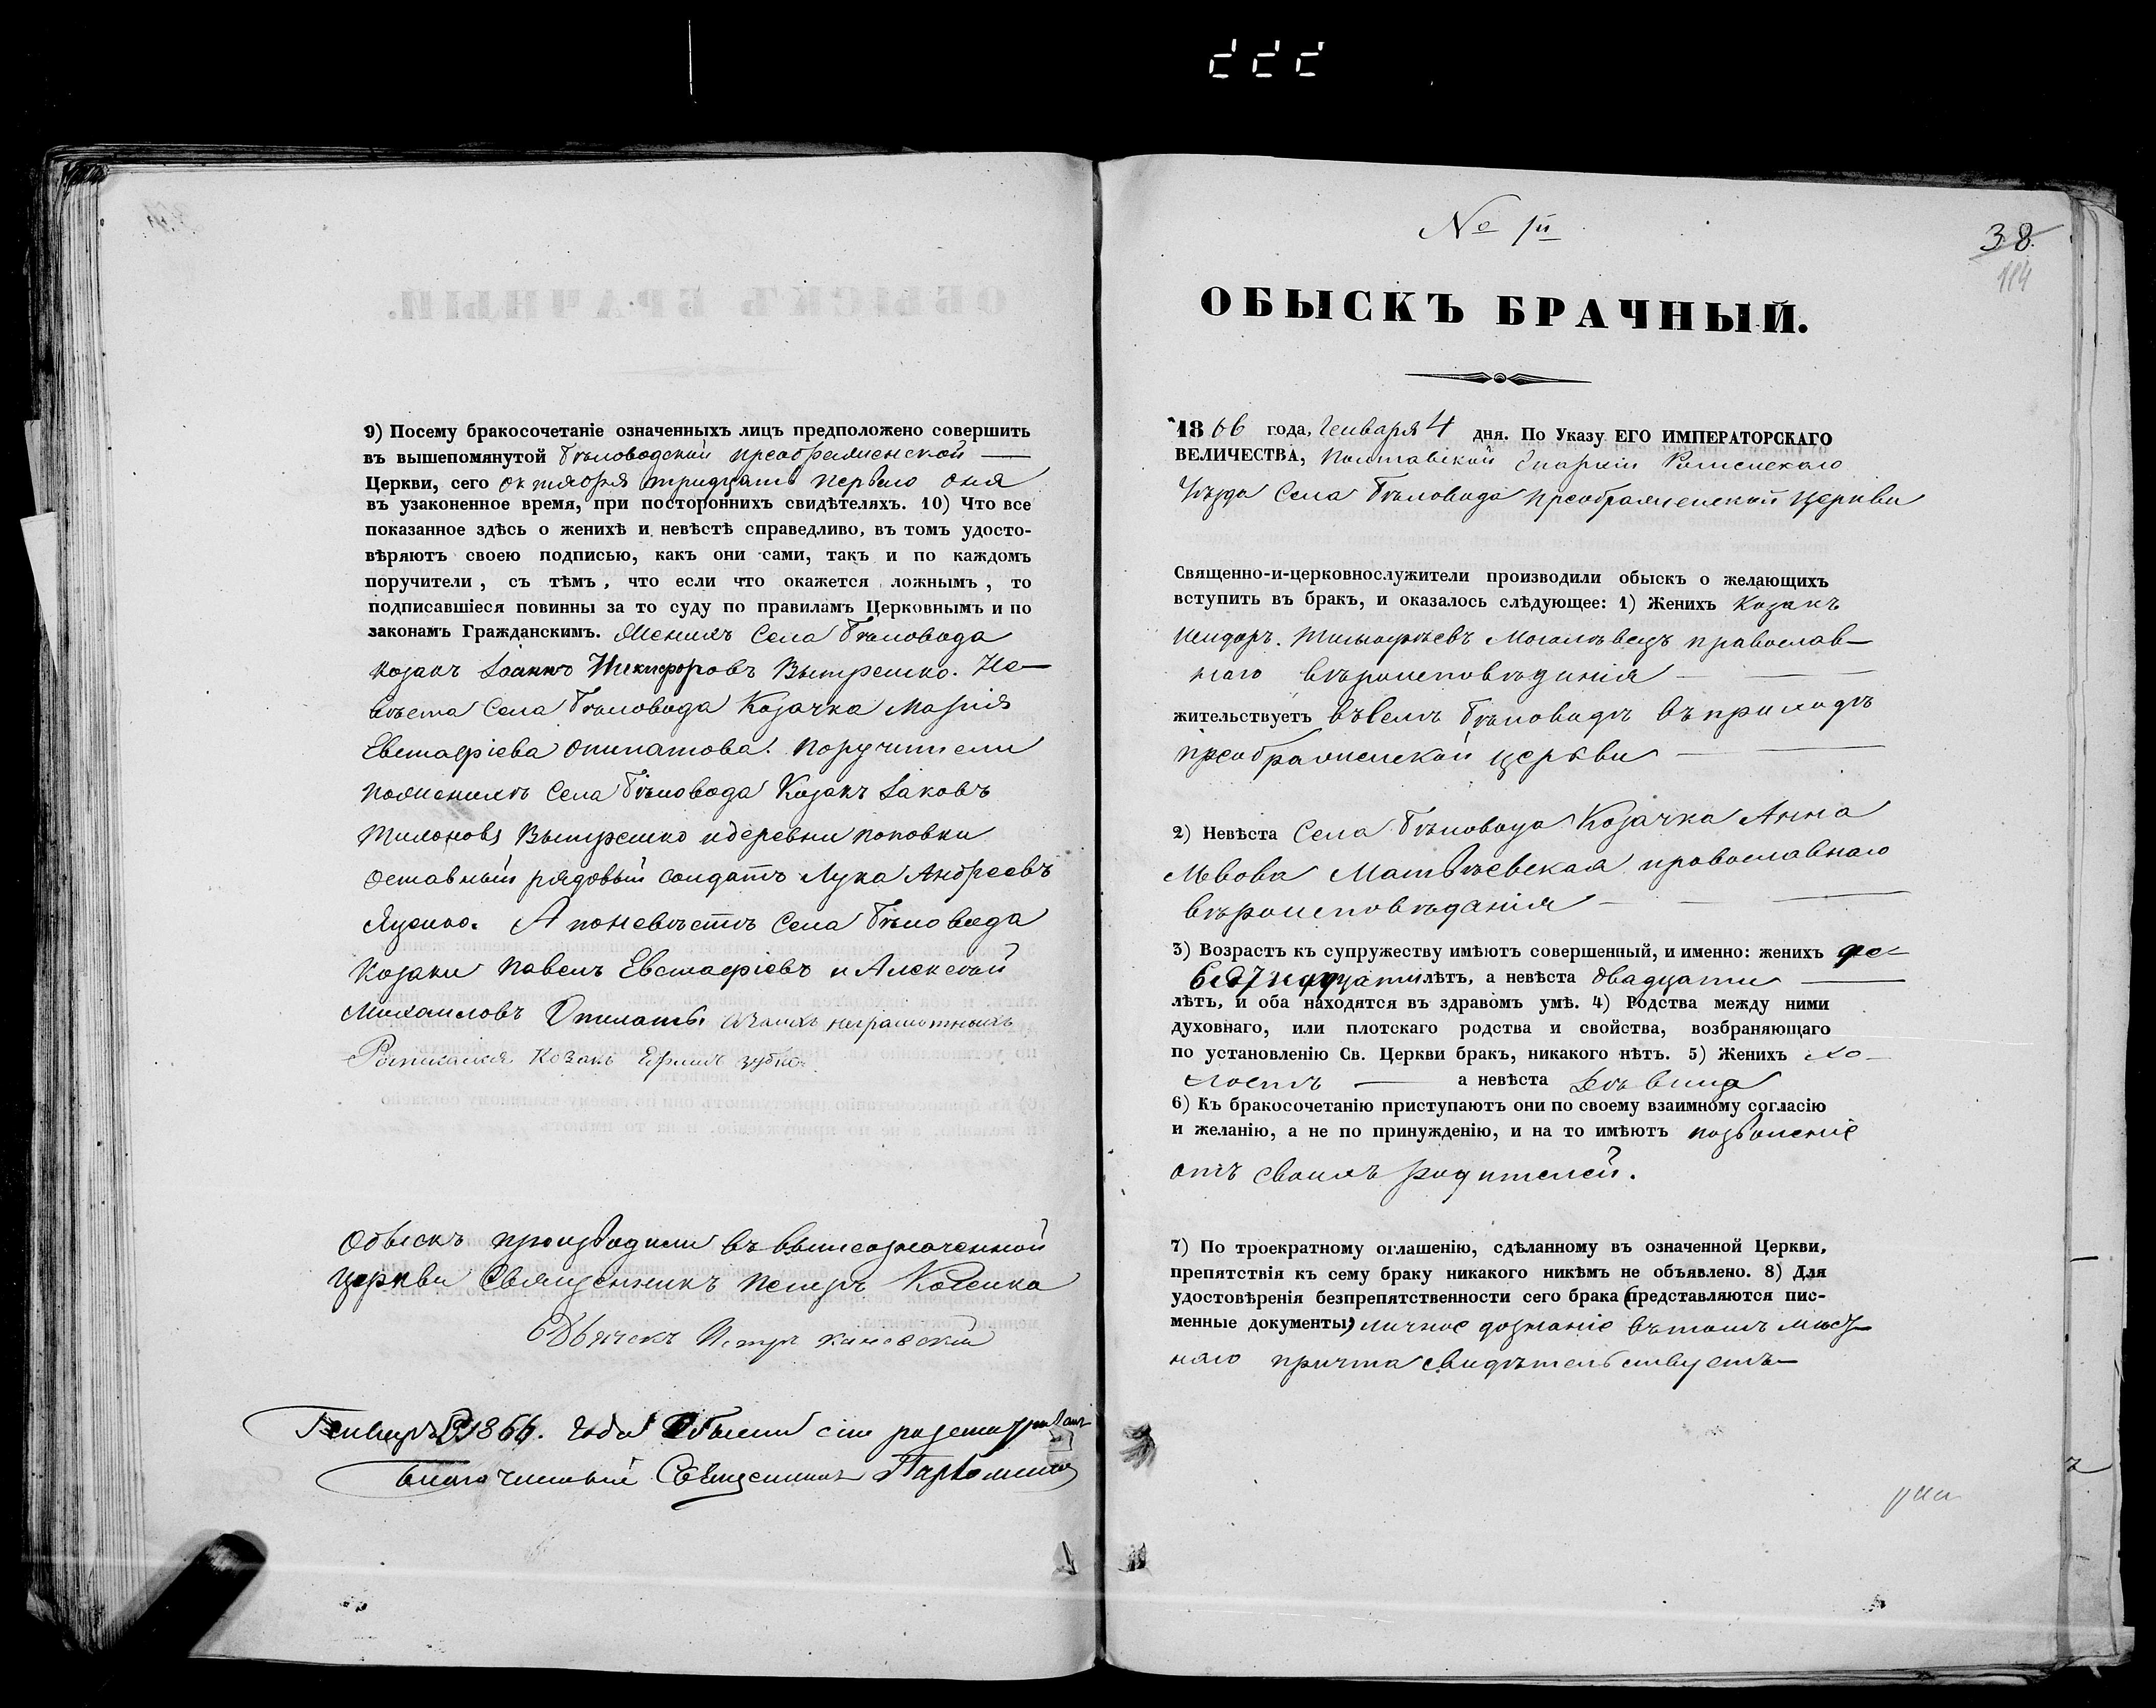 9) Посему бракосочетаніе означенныхъ лицъ предположено совершить
въ вышепомянутой Бѣловодской преображенской —
Церкви, сего октября тридцать первого дня
въ узаконенное время, при постороннихъ свидѣтеляхъ. 10) Что все
показанное здѣсь о женихѣ и невѣстѣ справедливо, въ томъ удосто-
вѣряютъ своею подписью, какъ они сами, такъ и по каждомъ
поручители, съ тѣмъ, что если что окажется ложнымъ, то
подписавшіеся повинны за то суду по правиламъ Церковнымъ и по
законамъ Гражданскимъ. Женихъ Села Бѣловода
козакъ Іоаннъ Никифоровъ Вытрешко. Не-
вѣста Села Бѣловода Козачка Марія
Евстафіева Опипатова. Поручители
пожениху Села Бѣловода Козакъ Іаковъ
Вытрешко идеревни поповки
оставный рядовый солдатъ Лука Андреевъ
Яценко. А поневѣстѣ Села Бѣловода
Козаки Павелъ Евстафіевъ и Алексѣй
Михаиловъ неграмотныхъ
Росписался козакъ Ефимъ зубко
Обыскъ производили въ вышеозначенной
церкви Священникъ Петръ
Дьячекъ Петръ
Генваря 1866. Года Обыски сіи разсматривалъ
благочинный Священникъ Пархоменко
№ 1й
38.
114
ОБЫСКЪ БРАЧНЫЙ.
1866 года, Генваря 4 дня. По Указу ЕГО ИМПЕРАТОРСКАГО
ВЕЛИЧЕСТВА, Полтавской Епархіи Роменскаго
Уѣзда Села Бѣловода преображенской церкви
Священно-и-церковнослужители производили обыскъ о желающихъ
вступить въ бракъ, и оказалось слѣдующее: 1) Женихъ Козакъ
Исидоръ Тимофѣевъ Могилѣвецъ православ-
наго вѣроисповѣдінія —
жительствуетъ въСелѣ Бѣловодѣ въ приходѣ
преображенской церкви —
2) Невѣста Села Бѣловода Козачка Анна
Львова Матвѣевская православнаго
вѣроисповѣданія —
3) Возрастъ къ супружеству имѣютъ совершенный, и именно: женихъ де-
вятнадцати лѣтъ, а невѣста двадцати —
лѣтъ, и оба находятся въ здравомъ умѣ. 4) Родства между ними
духовнаго, или плотскаго родства и свойства, возбраняющаго
по установленію Св. Церкви бракъ, никакого нѣтъ. 5) Женихъ хо-
лостъ — а невѣста Дѣвица
6) Къ бракосочетанію приступаютъ они по своему взаимному согласію
и желанію, а не по принужденію, и на то имѣютъ позволеніе
отъ своихъ родителей.
7) По троекратному оглашенію, сдѣланному въ означенной Церкви,
препятствія къ сему браку никакого никѣмъ не объявлено. 8) Для
удостовѣренія безпрепятственности сего брака (представляются пис-
менные документы) личное дознаніе вътомъ мѣст-
наго причта свидѣтельствуетъ